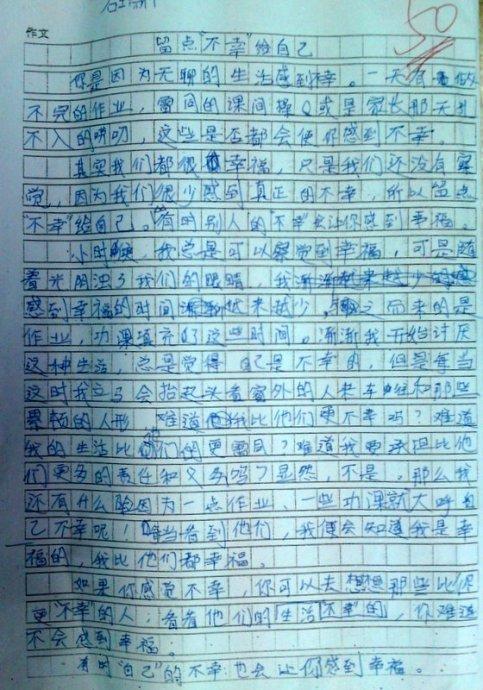 作文
50
留点"不幸"给自己
你是因为无聊的生活感到不幸。一天有做
不完的作业，雷同的课间操，或是家长那无孔
不入的唠叨，这些是否都会使你感到不幸。
其实我们都很幸福，只是我们还没有察
觉，因为我们很少感到真正的不幸，所以留点
"不幸"给自己。有时别人的"不幸"会让你感到幸福。
小时候，我总是可以察觉到幸福，可是随
着光阴浊了我们的眼睛，我
感到幸福的时间越来越少，之而来的是
作业，功课填充了这些时间。渐渐我开始讨厌
这种生活，总是觉得自己是不幸的，但是每当
这时我立马会抬起头看窗外的人来车往和那些
累顿的人形，难道我比他们更不幸吗？难道
我的生活比他们的更雷同？难道我要承担比他
们更多的责任和义务吗？显然，不是。那么我
还有什么脸因为一点作业、一些功课就大呼自
己不幸呢，每当看到他们，我便会知道我是幸
福的，我比他们都幸福。
如果你感觉不幸，你可以去想想那些比你
更"不幸"的人，看看他们的生活"不幸"的，你难道
不会感到幸福。
有时"自己"的不幸也会让你感到幸福。